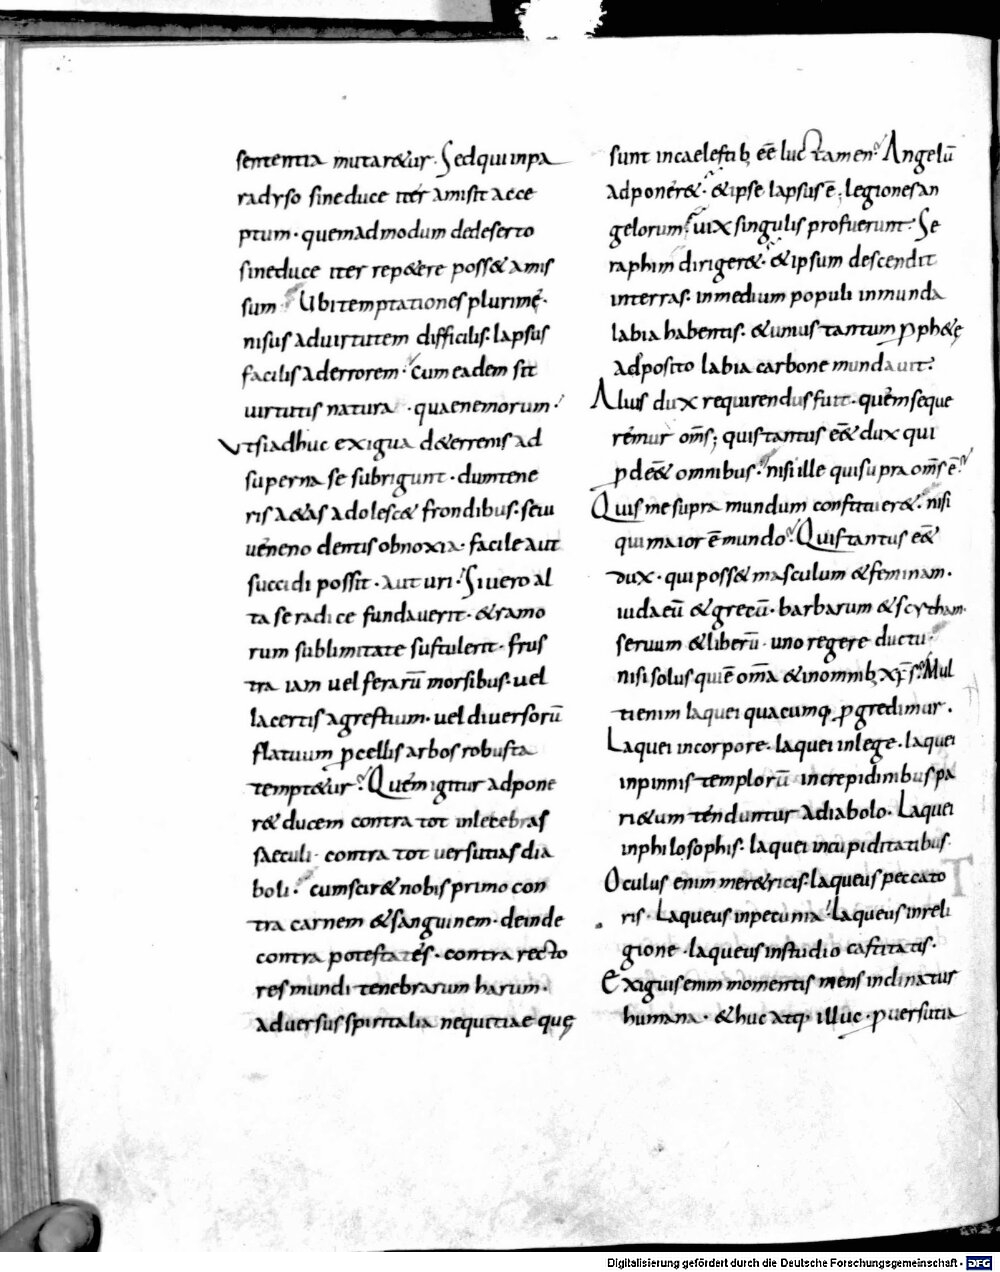 sententia mutar&ur. Sed qui inpa
radyso sine duce iter amisit acce
ptum. quemadmodum de deserto
sine duce iter rep&ere poss& amis
sum. Ubi temptationes plurimę.
nisus ad uirtutem difficilis. lapsus
facilis ad errorem. Cum eadem sit
uirtutis natura. quae nemorum.
Ut si adhuc exigua d& errenis ad
superna se subrigunt. dum tene
ris a&as adolesc& frondibus. seu
ueneno dentis obnoxia. facile aut
succidi possit. aut uri. Si uero al
ta se radice fundauerit. & ramo
rum sublimitate suffulerit. frus
tra iam uel ferarū morsibus. uel
lacertis agrestium. uel diuersorū
flatuum ꝓcellis arbos robusta
tempt&ur. Quem igitur adpone
r& ducem contra tot inlecebras
saeculi. contra tot uersutias dia
boli. cum scir& nobis primo con
tra carnem & sanguinem. deinde
contra potestates. contra recto
res mundi tenebrarum harum.
aduersus spiritalia nequitiae quę
sunt in caelestib; eē luctamen. Angelū
adponer&. & ipse lapsus ē. legiones an
gelorum. uix singulis profuerunt. Se
raphim diriger&. & ipsum descendit
in terras. in medium populi inmunda
labia habentis. & unius tantum ꝓph&ę
adposito labia carbone mundauit.
Alius dux requirendus fuit. quem seque
remur oms; quis tantus eē& dux qui
ꝓdeē& omnibus. nisi ille qui supra oms ē.
Quis me supra mundum constituer&. nisi
qui maior ē mundo. Quis tantus eē&
dux. qui poss& masculum & feminam.
iudaeū & grecū. barbarum & scytham.
seruum & liberū. uno regere ductu.
nisi solus qui ē oma & in omnib; xp̄s. Mul
ti enim laquei quacumq; ꝓgredimur.
Laquei in corpore. laquei in lege. laquei
in pinnis templorū in crepidinibus pa
ri&um tenduntur a diabolo. Laquei
in philosophis. laquei in cupiditatibus.
Oculus enim mer&ricis. laqueus peccato
ris. Laqueus in pecunia. Laqueus in reli
gione. laqueus in studio castitatis.
Exiguis enim momentis mens inclinatur
humana. & huc atq; illuc. ꝑuersutia
Digitalisierung gefördert durch die Deutsche Forschungsgemeinschaft - DFG